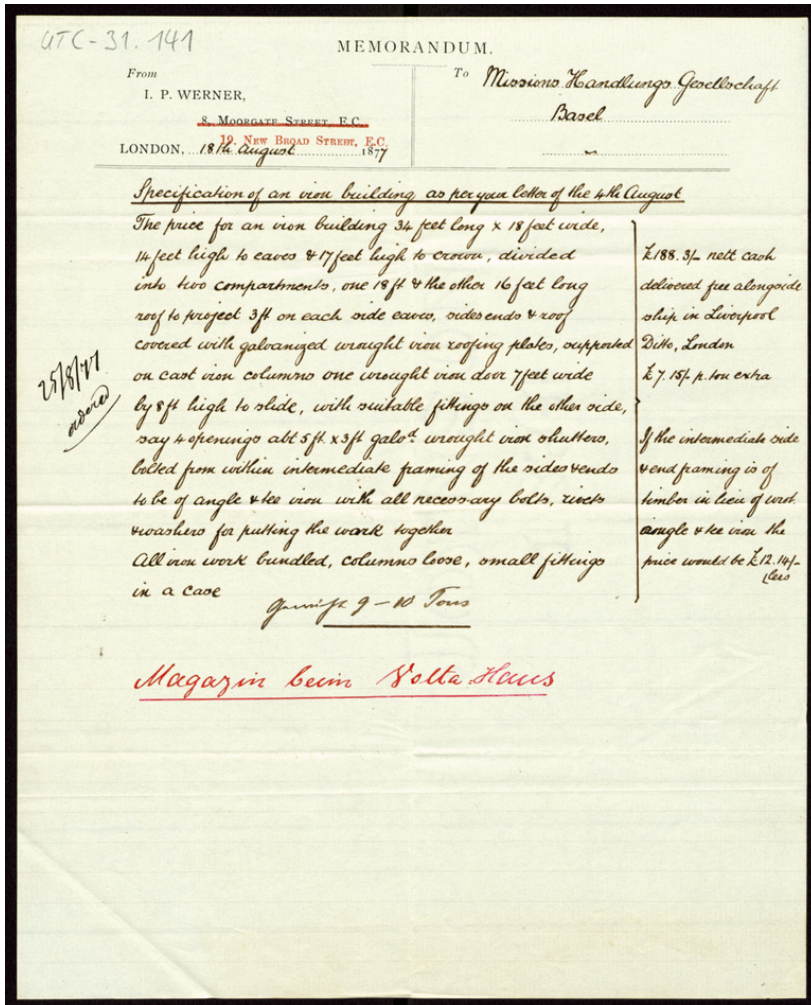 UTC-31.141
MEMORANDUM.
From
I. P. WERNER,
8, MOORGATE STREET, E.C.
19, NEW BROAD STREET, E.C.
LONDON, 18th August 1877
To Missions Handlungs Gesellschaft
Basel
"
Specification of an iron building as per your letter of the 4th August
The price for an iron building 34 feet long x 18 feet wide,
14 feet high to eaves & 17 feet high to crown, divided
into two compartments, one 18 ft & the other 16 feet long
roof to project 3ft on each side eaves, sides ends & roof
covered with galvanized wrought iron roofing plates, supported
on cast iron columns one wrought iron door 7 feet wide
by 8 ft high to slide, with suitable fittings on the other side,
say 4 openings abt 5 ft. x 3 ft galvd. wrought iron shutters,
bolted from within intermediate framing of the sides & ends
to be of angle & tee iron with all necessary bolts, rivets
& washers for putting the work together
All iron work bundled, columns loose, small fittings
in a case
9-10 Tons
£188.3/- nett cash
delivered free alongside
ship in Liverpool
Ditto, London
£7.15/- p. ton extra
If the intermediate side
& end framing is of
timber in lieu of wrot.
angle & tee iron the
price would be £12.14/-
less
25/8/77
ordered
Magazin beim Volta-Haus